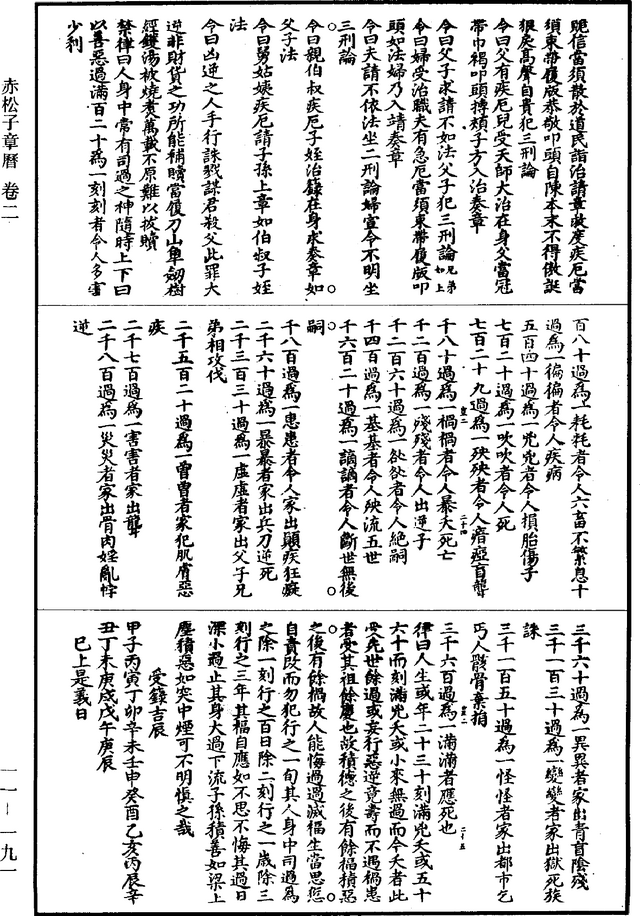 赤松子章曆 卷二
詭信當須散於道民詣治請章救度疾厄當
須束帶履版恭敬叩頭自陳本末不得傲誕
狠戾高聲自責犯三刑論
令曰父有疾厄兒受天師大治在身父當冠
帶巾褐叩頭搏頰子方入治奏章
令曰父子求請不如法父子犯三刑論兄弟如上
令曰婦受治職夫有急厄當須束帶履版叩
頭如法婦乃入靖奏章
令曰夫請不依法坐二刑論婦宣令不明坐
三刑論
令曰親伯叔疾厄子姪治籙在身求奏章如
父子法
令曰舅姑姨疾厄請子孫上章如伯叔子姪
法
令曰凶逆之人手行誅戮謀君殺父此罪大
逆非財貨之功所能補贖當履刀山軍劒樹
經鑊湯被燒煮萬載不原難以拔贖
禁律曰人身中常有司過之神隨時上下曰
以善惡過滿百二十為一刻刻者令人多害
少利
百八十過為一耗耗者令人六畜不繁息十
過為一徧徧者令人疾病
五百四十過為一兇兇者令人損胎傷子
七百二十過為一吹吹者令人死
七百二十九過為一殃殃者令人瘖瘂盲聾
千八十過為一禍禍者令人暴夭死亡
千二百過為一殘殘者令人出逆子
千二百六十過為一欲欲者令人絕嗣
千四百過為一基基者令人殃流五世
千六百二十過為一謫謫者令人斷世無後
嗣
千八百過為一患患者令人家出顛疾狂癡
二千六十過為一暴暴者家出兵刀逆死
二千三百三十過為一虛虛者家出父子兄
弟相攻伐
二千五百二十過為一曾曾者家犯肌膚惡
疾
二千七百過為一害害者家出聾
二千八百過為一災災者家出骨肉婬亂悖
逆
三千六十過為一異異者家出青盲陰殘
三千一百三十過為一變變者家出獄死族
誅
三千一百五十過為一怪怪者家出都市乞
丐人骸骨棄捐
三千六百過為一滿滿者應死也
律曰人生或年二十三十刻滿兇夭或五十
六十而刻滿兇夭或小來無過而今夭者此
受先世餘過或妄行惡逆竟壽而不遇禍患
者受其祖餘慶也故積德之後有餘福積惡
之後有餘禍故人能悔過過滅福生當思愆
自責改而勿犯行之一旬其人身中司過為
之除一刻行之百日除二刻行之一歲除三
刻行之三年其福自應如不思不悔其過日
深小過止其身大過下流子孫積善如梁上
塵積惡如突中煙可不明慎之哉
受籙吉辰
甲子丙寅丁卯辛未壬申癸酉乙亥丙辰辛
丑丁未庚戌戊午庚辰
已上是義日
一一－一九一